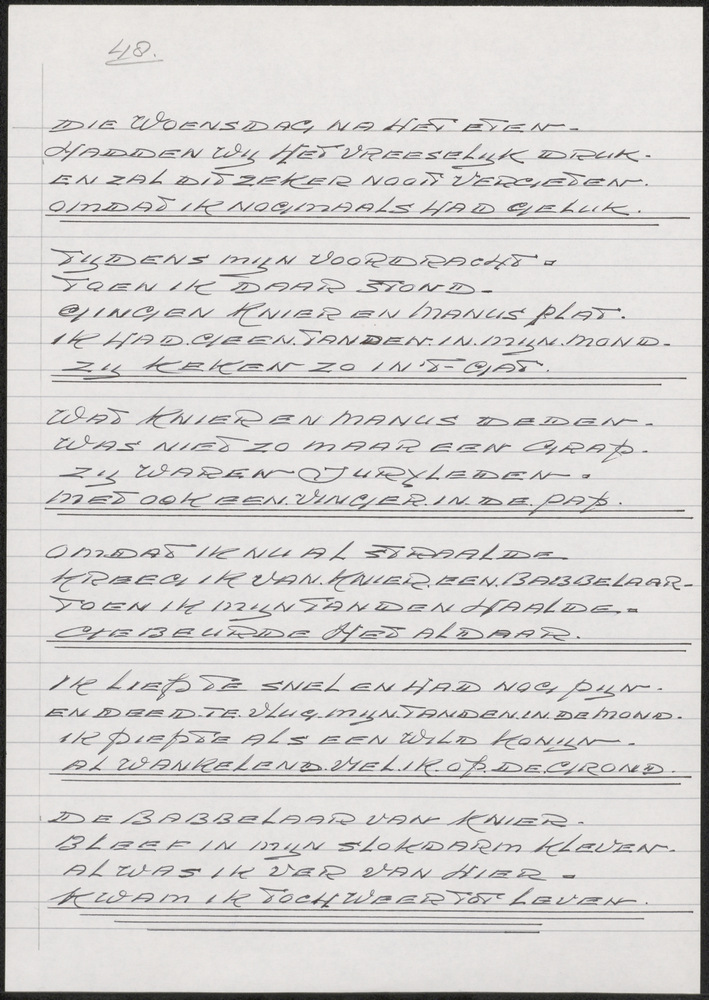 48.
DIE WOENSDAG NA HET ETEN.
HADDEN WIJ HET VREESELIJK DRUK.
EN ZAL DIT ZEKER NOOIT VERGETEN.
OMDAT IK NOGMAALS HAD GELUK.
TIJDENS MIJN VOORDRACHT.
TOEN IK DAAR STOND.
GINGEN KNIER EN MANUS PLAT.
IK HAD.GEEN.TANDEN.IN.MIJN.MOND.
ZIJ KEKEN ZO IN'T-GAT.
WAT KNIER EN MANUS DEDEN.
WAS NIET ZO MAAR EEN GRAP.
ZIJ WAREN JURYLEDEN.
MET OOK EEN.VINGER.IN.DE.PAP.
OMDAT IK NU AL STRAALDE
KREEG IK VAN.KNIER.EEN.BABBELAAR-
TOEN IK MIJN TANDEN HAALDE.
GEBEURDE HET ALDAAR.
IK LIEP TE SNEL EN HAD NOG PIJN.
EN DEED.TE.VLUG.MIJN TANDEN.IN.DE MOND.
IK PIEPTE ALS EEN WILD KONIJN.
AL WANKELEND.VIEL.IK.OP.DE.GROND.
DE BABBELAAR VAN KNIER.
BLEEF IN MIJN SLOKDARM KLEVEN.
AL WAS IK VER VAN HIER.
KWAM IK TOCH WEER TOT LEVEN.